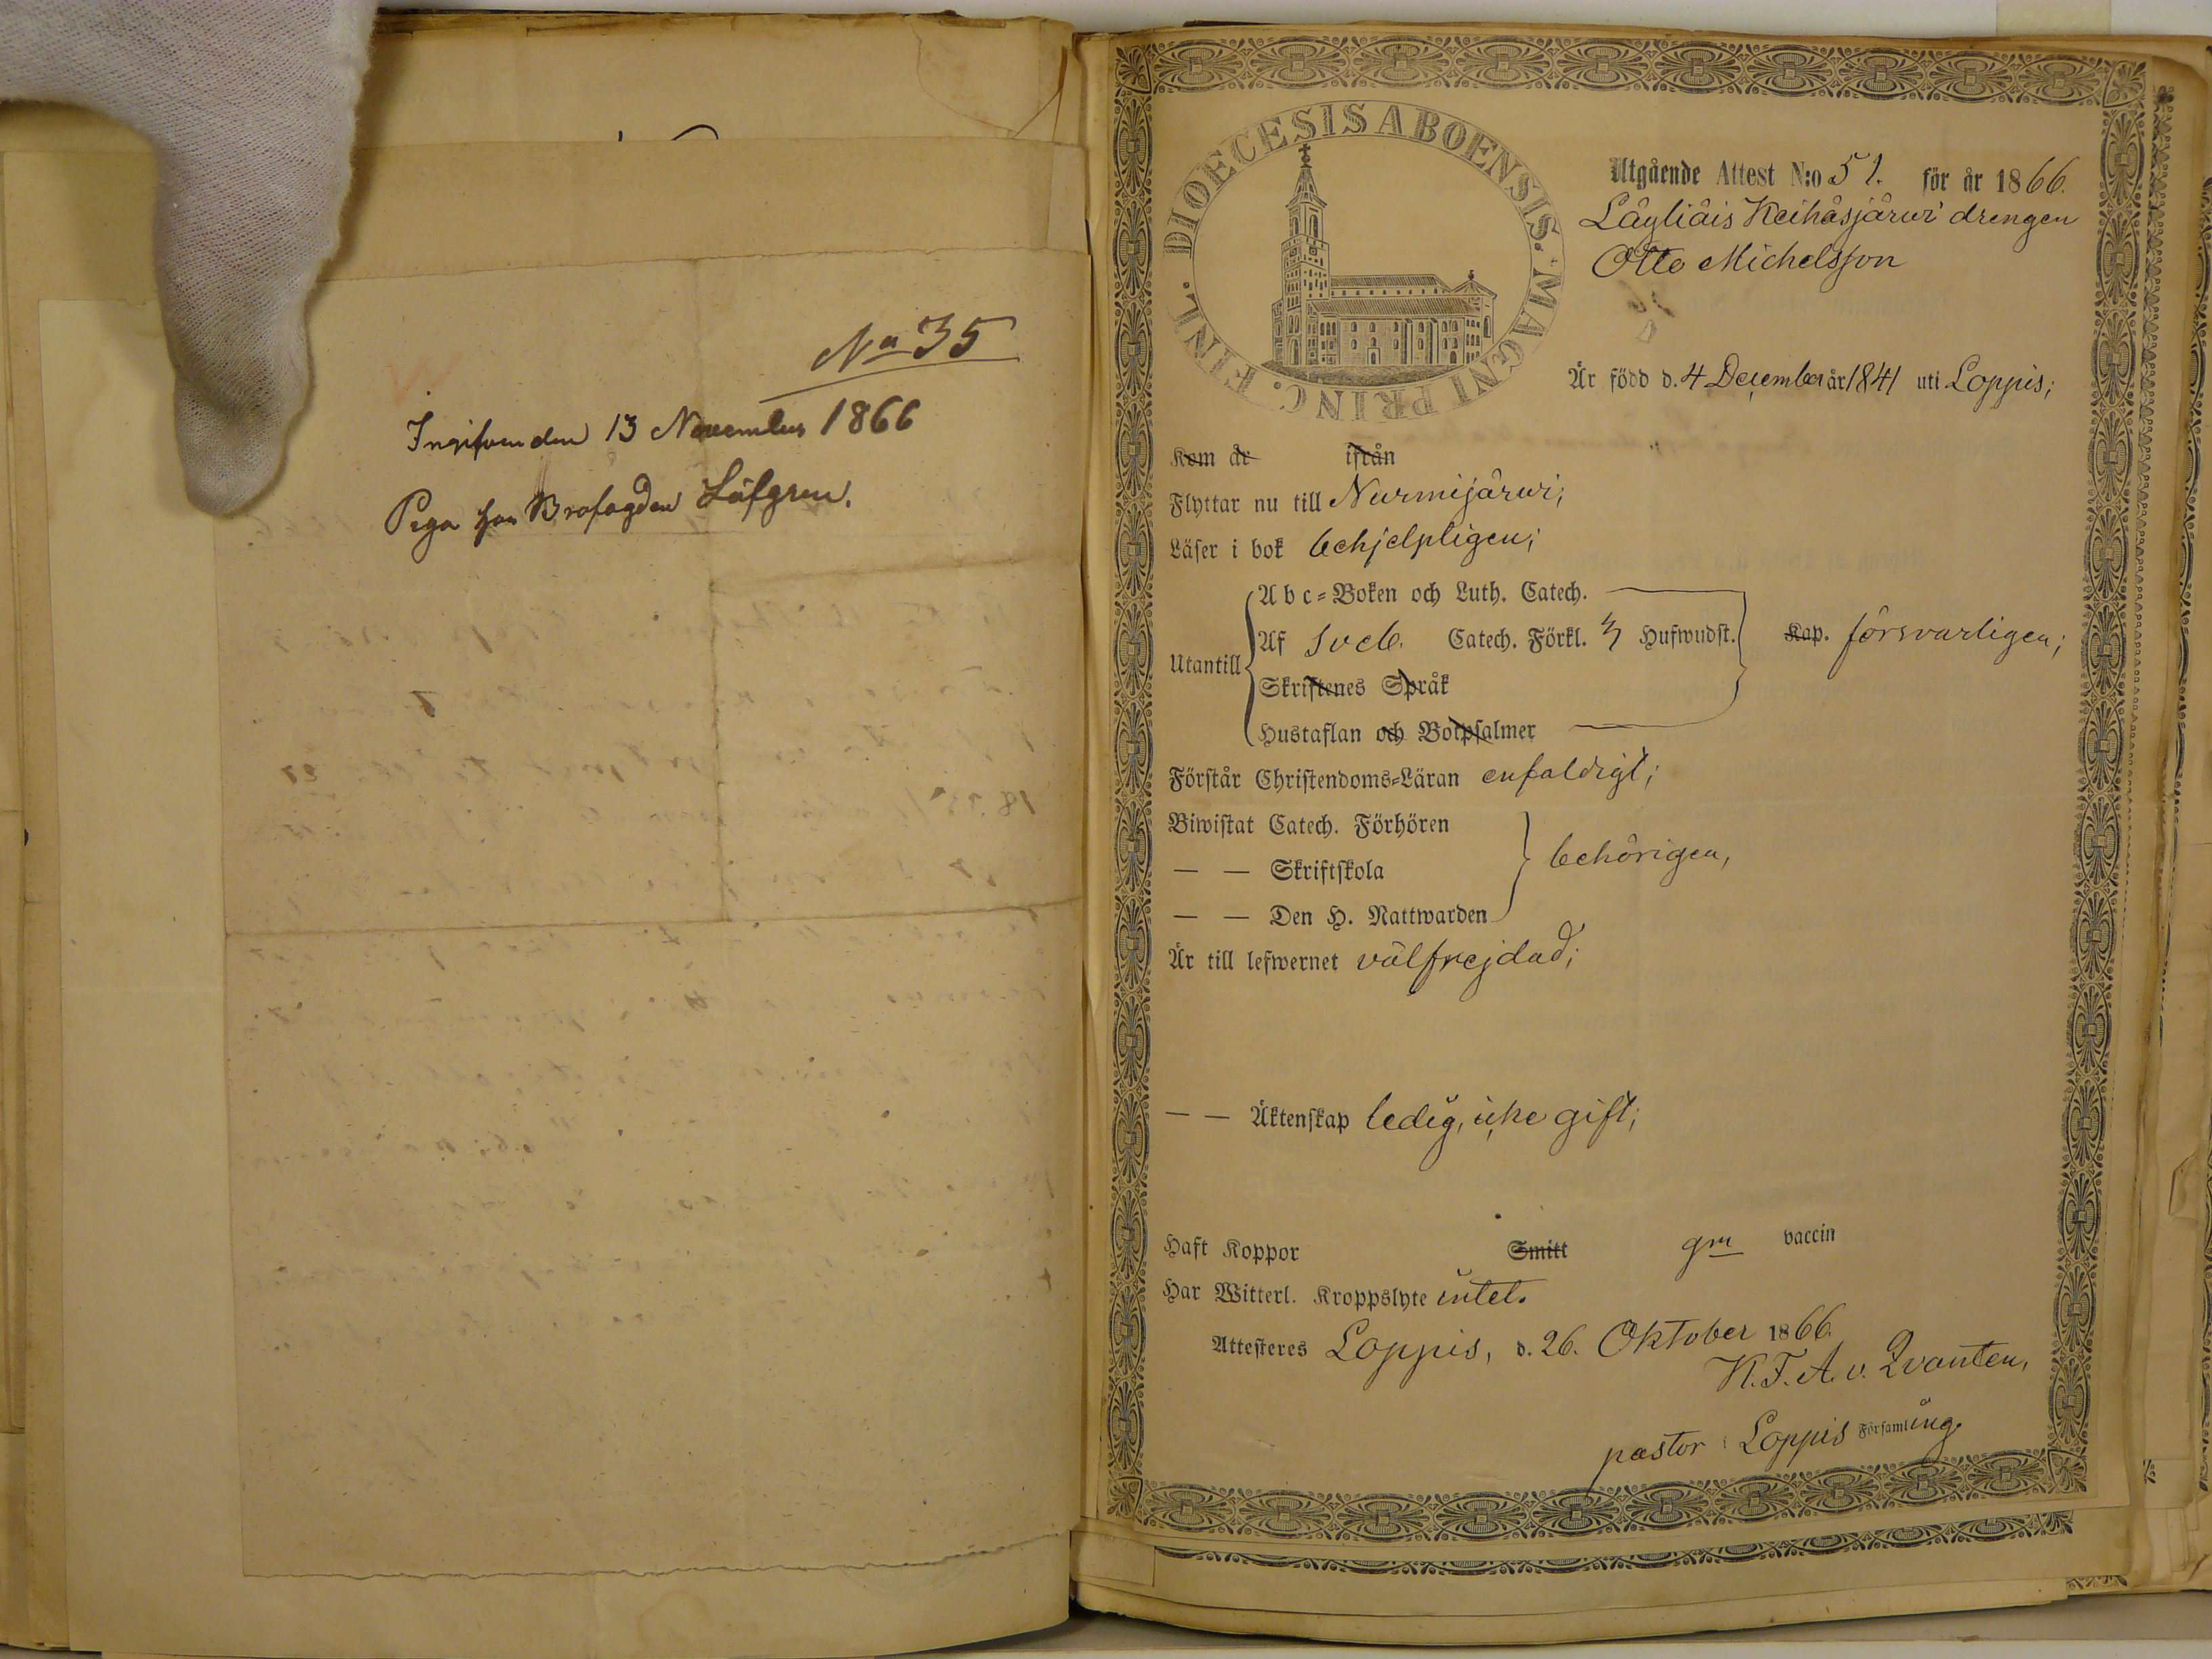 No 35
Ingifven den 13 November 1866
Piga hos Brofogden Löfgren.
DIOECESIS ABOENSIS. MAGNI PRINC. FINL.
Utgående Attest N:o 51. för år 1866.
Läyliäis Keihäsjärwi drengen
Otto Michelsson
Är född d. 4 December år 1841 uti Loppis;
Kom år ifrån
Flyttar nu till Nurmijärwi;
Läser i bok behjelpligen;
Utantill
Abc=Boken och Luth. Catech.
Af Sveb. Catech. Förkl. Hufwudst. Kap. försvarligen;
Skriftenes Språk
Hustaflan och Botpsalmer
Förstår Christendoms=Läran enfaldigt;
Biwistat Catech. Förhören
— — Skriftskola behörigen,
— — Den H. Nattwarden
Är till lefwernet välfrejdad;
— — Äktenskap ledig, icke gift;
Haft Koppor Smitt gm vaccin
Har Witterl. Kroppslyte intet.
Attesteres Loppis, d. 26. Oktober 1866.
K. F. A. v. Qvanten,
pastor i Loppis Församling.